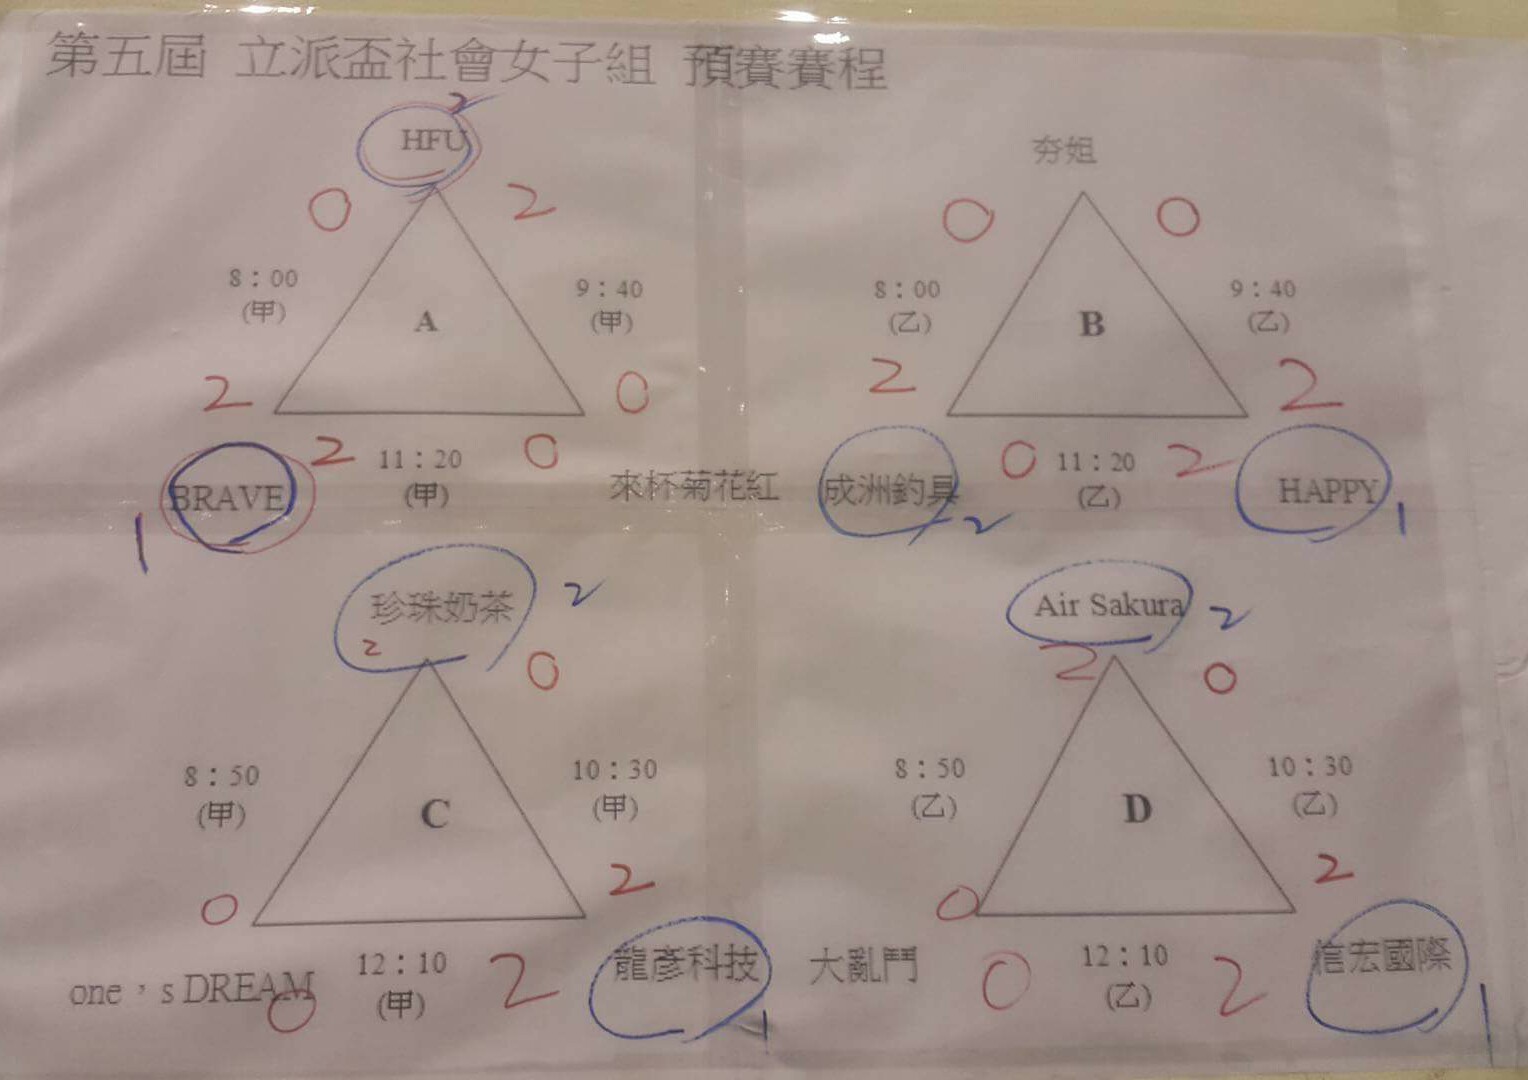 第五屆 立派盃社會女子組 預賽賽程
2
HFU
夯姐
0 2
0 0
8：00 (甲)
A
9：40 (甲)
8：00 (乙)
B
9：40 (乙)
2 0
2 2
2 11：20 (甲) 0
0 11：20 (乙) 2
BRAVE 1
來杯菊花紅
成洲釣具 2
HAPPY 1
珍珠奶茶 2
2 0
Air Sakura 2
2 0
8：50 (甲)
C
10：30 (甲)
8：50 (乙)
D
10：30 (乙)
0 2
0 2
one，s DREAM
0 12：10 (甲) 2
龍彥科技 1
大亂鬥
0 12：10 (乙) 2
信宏國際 1